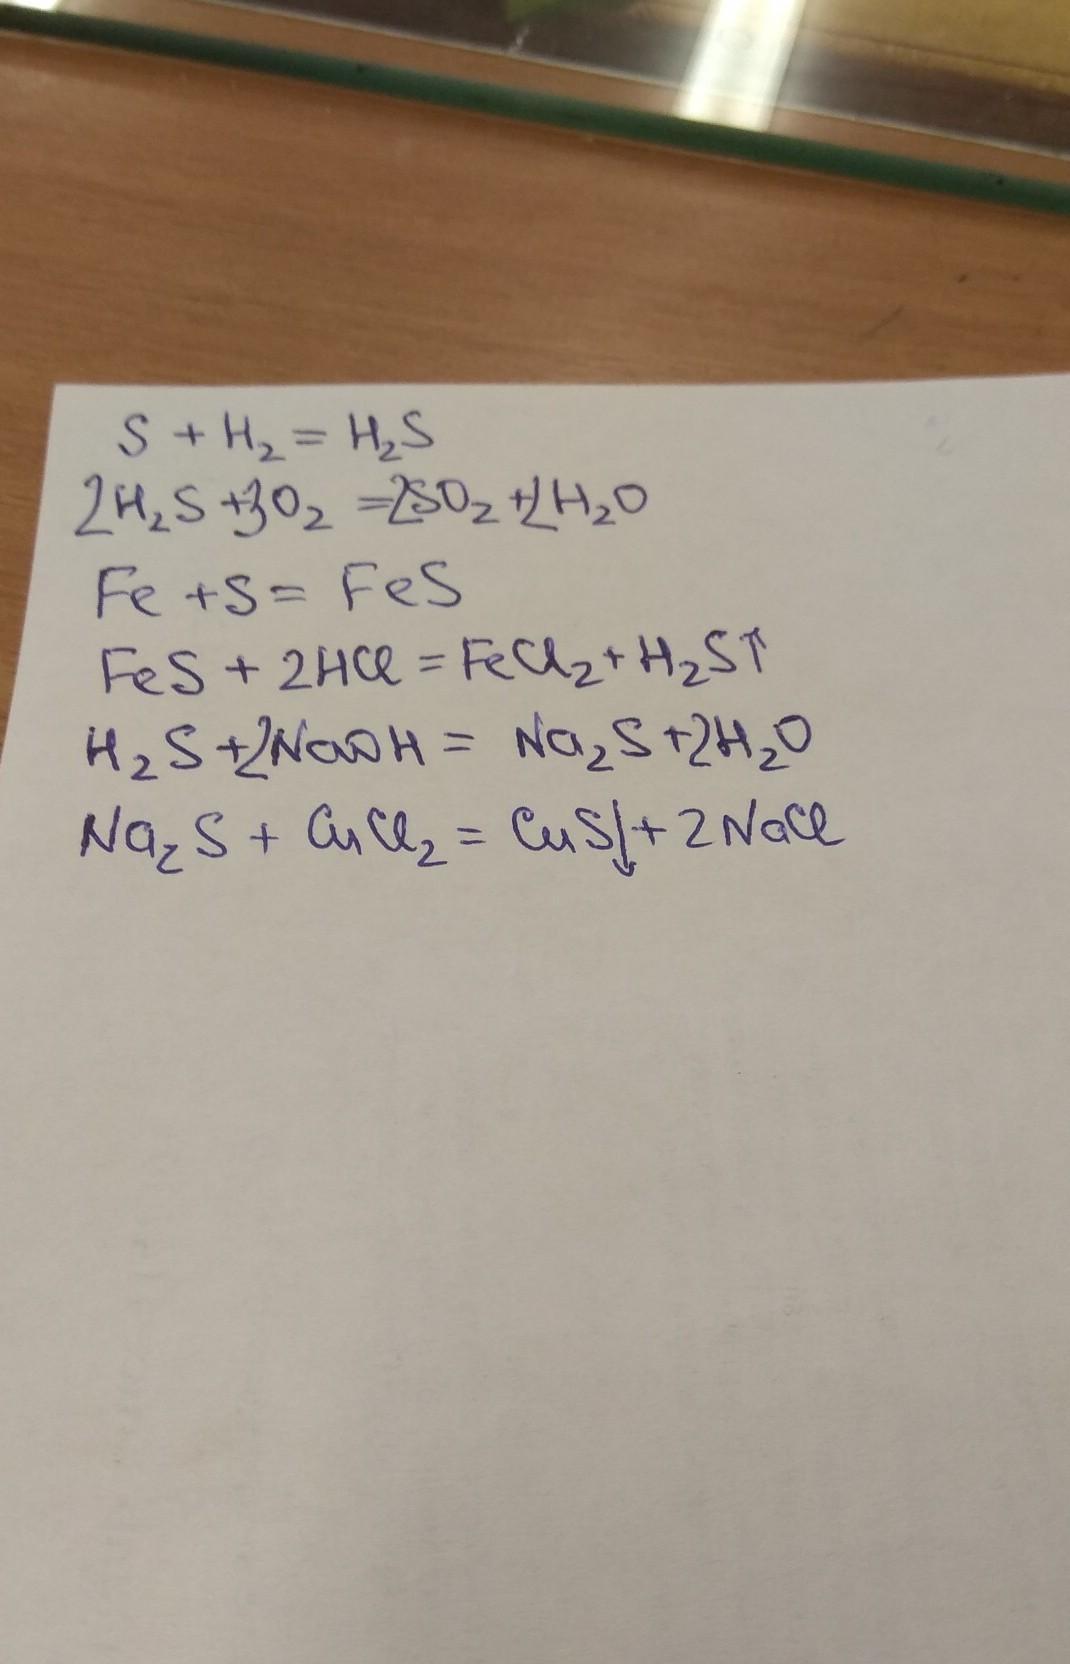 S + H₂ = H₂S
2H₂S + 3O₂ = 2SO₂ + 2H₂O
Fe + S = FeS
FeS + 2HCl = FeCl₂ + H₂S↑
H₂S + 2NaOH = Na₂S + 2H₂O
Na₂S + CuCl₂ = CuS↓ + 2NaCl